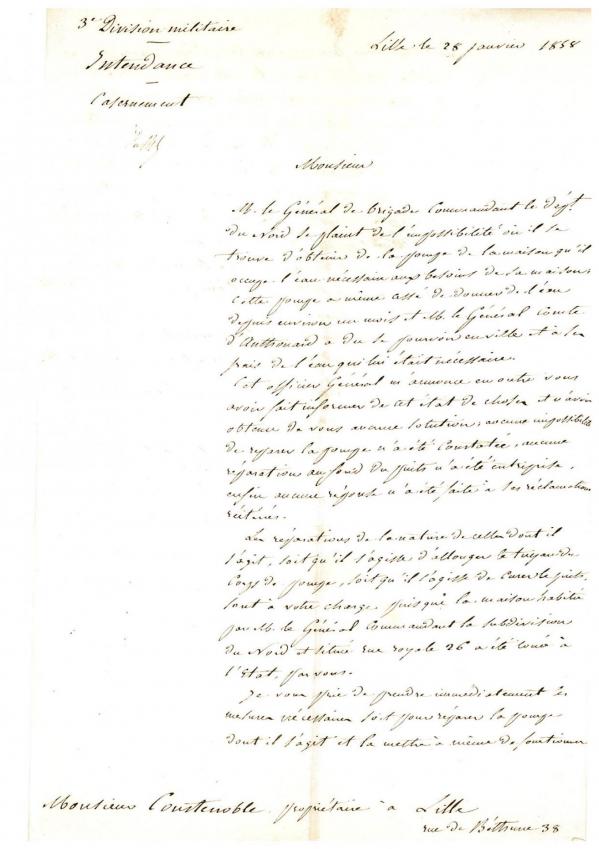 3e Division militaire
Intendance
Casernement
Lille le 28 janvier 1858
Monsieur
M. le Général de brigade Commandant le dépt.
du Nord se plaint de l'impossibilité où il se
trouve d'obtenir de la pompe de la maison qu'il
occupe l'eau nécessaire aux besoins de sa maison;
Cette pompe a même cessé de donner de l'eau
depuis environ un mois et M. le Général comte
d'Anthouard a du se pourvoir en ville et à ses
frais de l'eau qui lui était nécessaire.
Cet officier Général m'annonce en outre vous
avoir fait informer de cet état de choses et n'avoir
obtenu de vous aucune solution; aucune impossibilité
de réparer la pompe n'a été constatée, aucune
réparation au fond du puits n'a été entreprise,
enfin aucune réponse n'a été faite à ses réclamations
réitérées.
Les réparations de la nature de celles dont il
s'agit, soit qu'il s'agisse d'allonger le tuyau du
Corps de pompe, soit qu'il s'agisse de curer le puits,
sont à votre charge, puisque la maison habitée
par M. le Général Commandant la subdivision
du Nord et située rue royale 26 a été louée à
l'État, par vous.
Je vous prie de prendre immédiatement les
mesures nécessaires soit pour réparer la pompe
dont il s'agit et la mettre à même de fonctionner
Monsieur Constenoble propriétaire à Lille
rue de Béthune 38